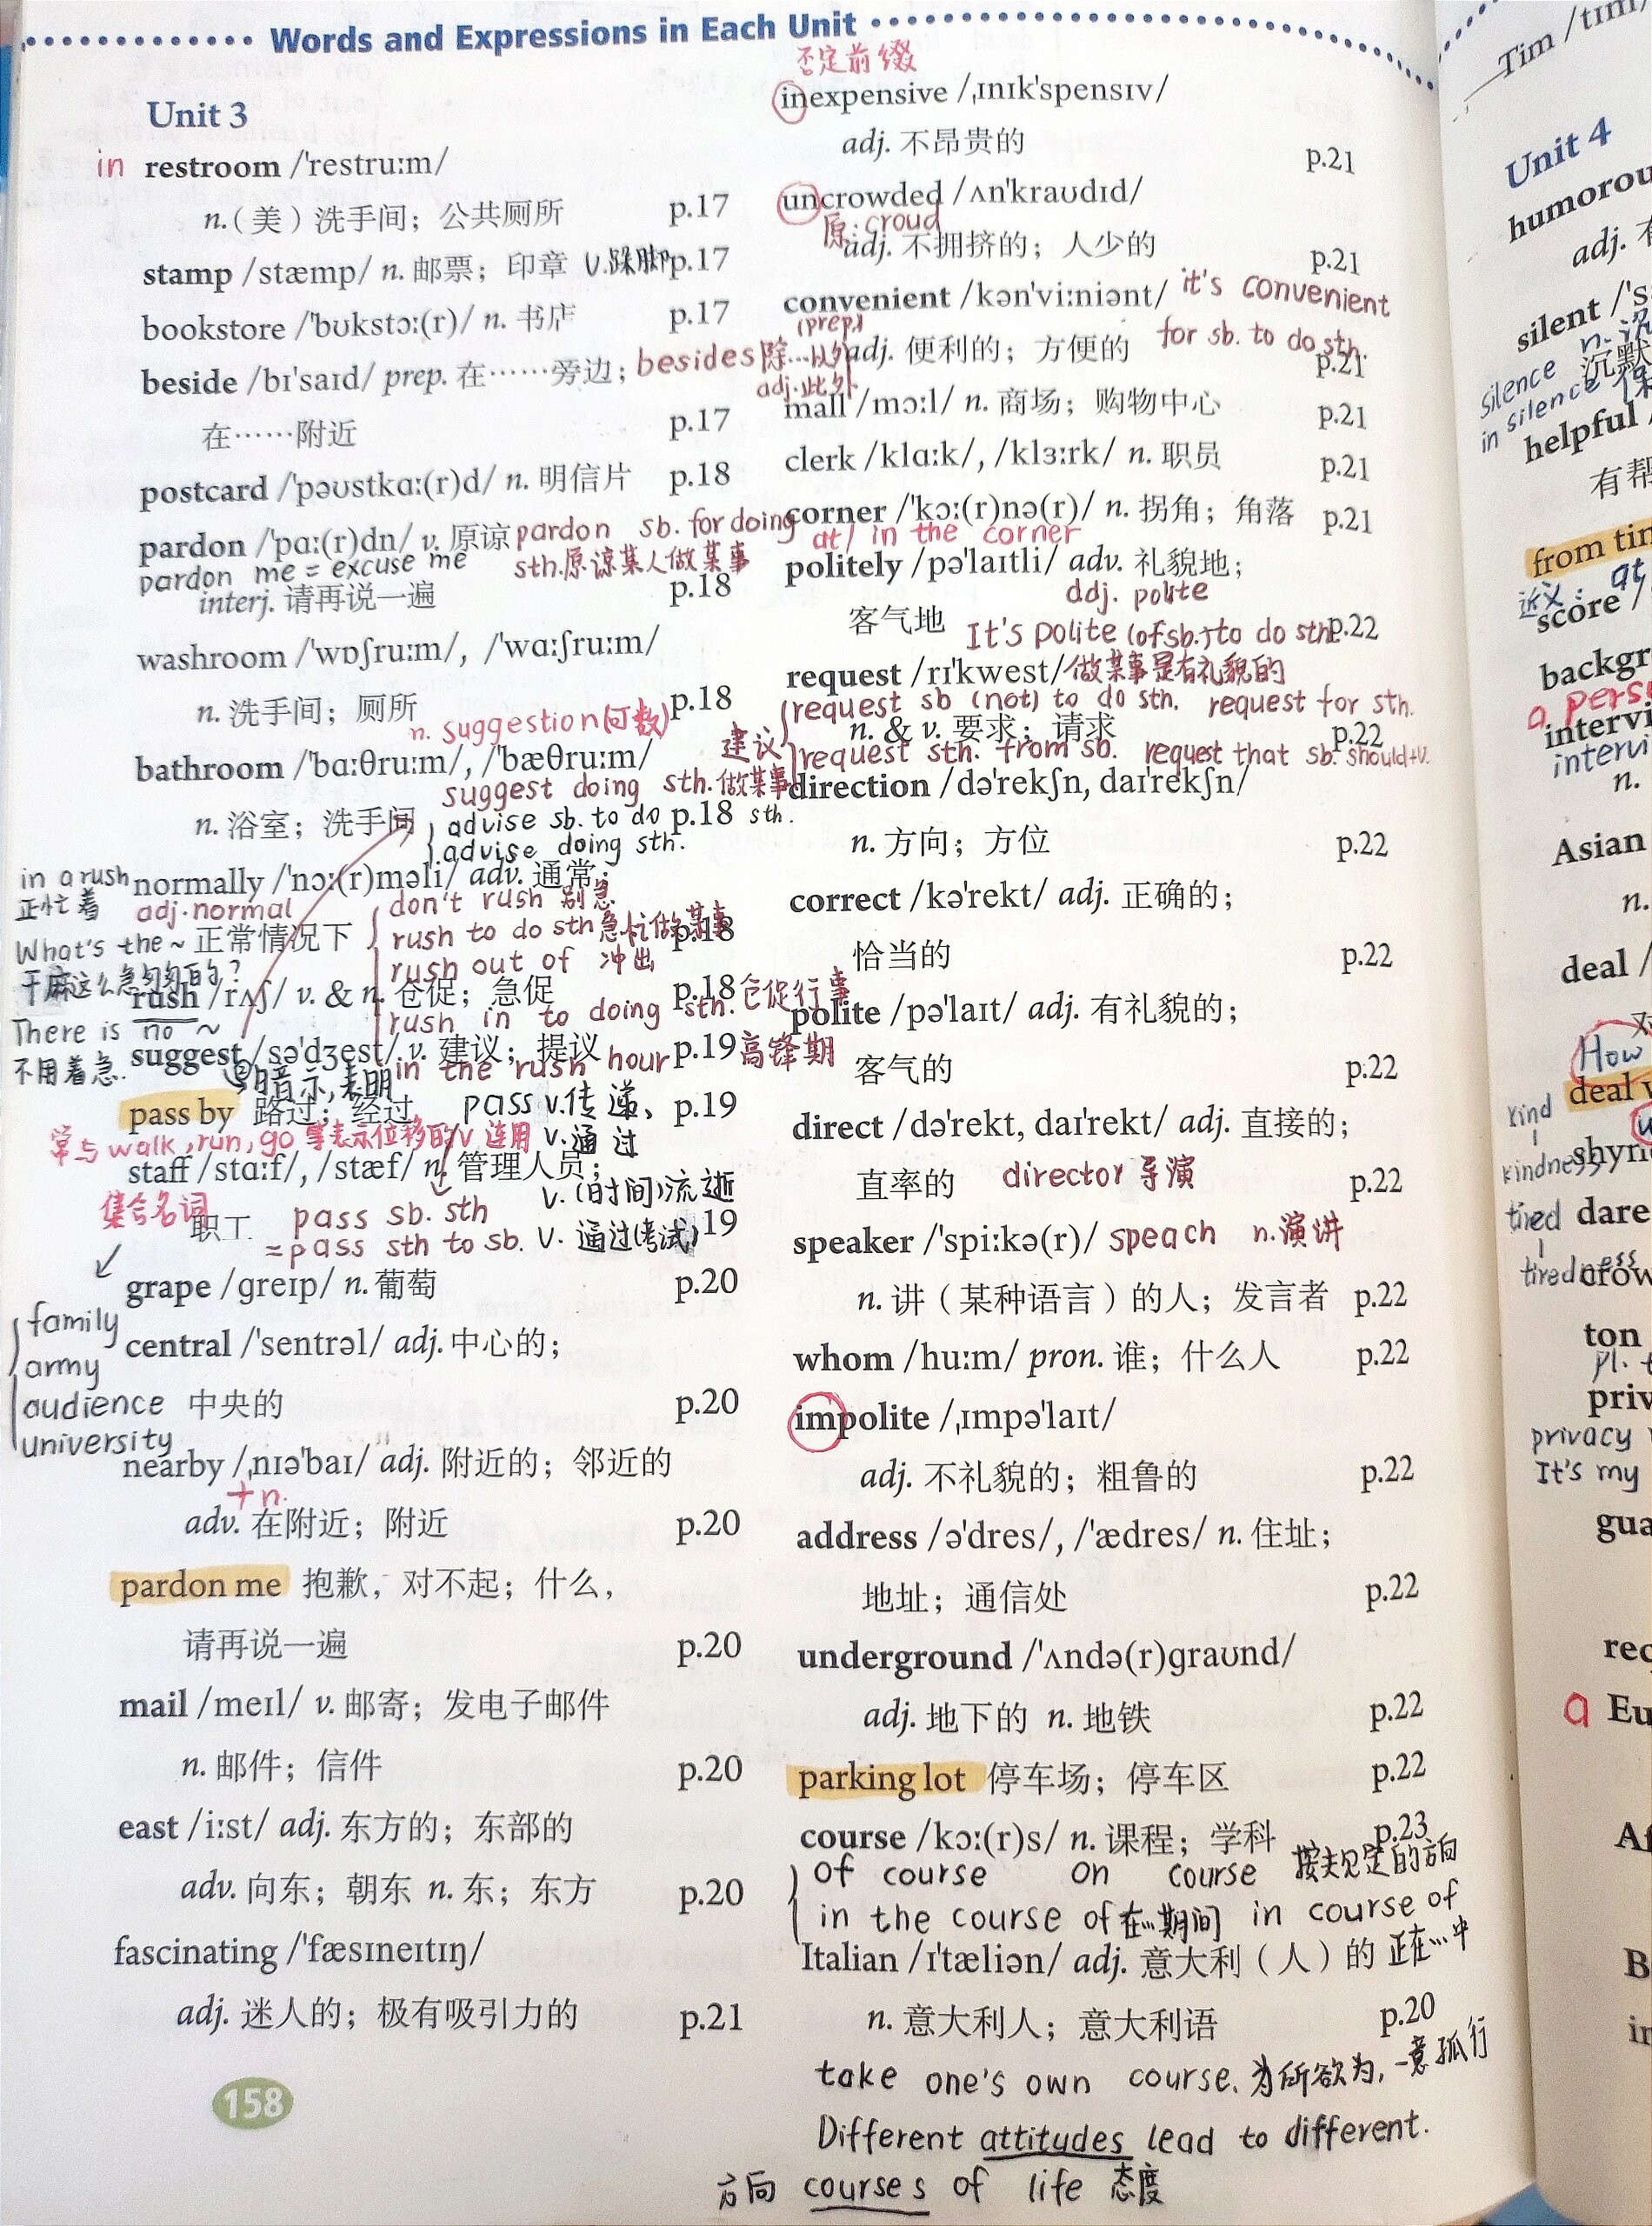 Words and Expressions in Each Unit
Unit 3
in restroom /'restruːm/
n.（美）洗手间；公共厕所 p.17
stamp /stæmp/ n. 邮票；印章 V.跺脚 p.17
bookstore /'bʊkstɔː(r)/ n. 书店 p.17
beside /bɪ'saɪd/ prep. 在……旁边；
besides 除…以外 (prep.)
adj.此外
在……附近 p.17
postcard /'pəʊstkɑː(r)d/ n. 明信片 p.18
pardon /'pɑː(r)dn/ v. 原谅 pardon sb. for doing
pardon me = excuse me sth.原谅某人做某事
interj. 请再说一遍 p.18
washroom /'wɒʃruːm/, /'wɑːʃruːm/
n. 洗手间；厕所 p.18
n. suggestion(可数)
bathroom /'bɑːθruːm/, /'bæθruːm/
建议
suggest doing sth.做某事
n. 浴室；洗手间 p.18
advise sb. to do sth.
advise doing sth.
in a rush
正忙着
normally /'nɔː(r)məli/ adv. 通常；
adj.normal
don't rush 别急
正常情况下 p.18
What's the ~
干麻这么急匆匆的？
rush to do sth 急忙做某事
rush out of 冲出
rush /rʌʃ/ v. & n. 仓促；急促 p.18
rush in to doing sth. 仓促行事
There is no ~
不用着急.
suggest /sə'dʒest/ v. 建议；提议 p.19
in the rush hour 高锋期
暗示,表明
pass by 路过；经过 p.19
pass v.传递、
常与walk,run,go 等表示位移的v 连用
v.通过
staff /stɑːf/, /stæf/ n. 管理人员；
集合名词
v.(时间)流逝
职工 19
pass sb. sth
=pass sth to sb. V. 通过(考试)
grape /ɡreɪp/ n. 葡萄 p.20
family
army
audience
university
central /'sentrəl/ adj. 中心的；
中央的 p.20
nearby /ˌnɪə'baɪ/ adj. 附近的；邻近的
+n.
adv. 在附近；附近 p.20
pardon me 抱歉，对不起；什么，
请再说一遍 p.20
mail /meɪl/ v. 邮寄；发电子邮件
n. 邮件；信件 p.20
east /iːst/ adj. 东方的；东部的
adv. 向东；朝东 n. 东；东方 p.20
fascinating /'fæsɪneɪtɪŋ/
adj. 迷人的；极有吸引力的 p.21
158
否定前缀
inexpensive /ˌɪnɪk'spensɪv/
adj. 不昂贵的 p.21
uncrowded /ʌn'kraʊdɪd/
原:croud
adj. 不拥挤的；人少的 p.21
convenient /kən'viːniənt/ it's convenient
adj. 便利的；方便的 p.21
for sb. to do sth.
mall /mɔːl/ n. 商场；购物中心 p.21
clerk /klɑːk/, /klɜːrk/ n. 职员 p.21
corner /'kɔː(r)nə(r)/ n. 拐角；角落 p.21
at/ in the corner
politely /pə'laɪtli/ adv. 礼貌地；
adj. polite
客气地 p.22
It's polite (of sb.) to do sth
request /rɪ'kwest/ 做某事是有礼貌的
request sb (not) to do sth. request for sth.
n. & v. 要求；请求 p.22
request sth. from sb. request that sb. should+v.
direction /də'rekʃn, daɪ'rekʃn/
n. 方向；方位 p.22
correct /kə'rekt/ adj. 正确的；
恰当的 p.22
polite /pə'laɪt/ adj. 有礼貌的；
客气的 p.22
direct /də'rekt, daɪ'rekt/ adj. 直接的；
直率的 director 导演 p.22
speaker /'spiːkə(r)/ speach n.演讲
n. 讲（某种语言）的人；发言者 p.22
whom /huːm/ pron. 谁；什么人 p.22
impolite /ˌɪmpə'laɪt/
adj. 不礼貌的；粗鲁的 p.22
address /ə'dres/, /'ædres/ n. 住址；
地址；通信处 p.22
underground /'ʌndə(r)ɡraʊnd/
adj. 地下的 n. 地铁 p.22
parking lot 停车场；停车区 p.22
course /kɔː(r)s/ n. 课程；学科 p.23
of course on course 按规定的方向
in the course of 在…期间 in course of
正在…中
Italian /ɪ'tæliən/ adj. 意大利（人）的
n. 意大利人；意大利语 p.20
take one's own course. 为所欲为, 一意孤行
Different attitudes lead to different.
方向 courses of life 态度
Tim
Unit 4
adj.
silent
silence n.
沉默
in silence
helpful
有帮
from tim
近义: at
score
backgr
a pers
intervi
intervi
n.
Asian
n.
deal /
对
How
deal w
kind
kindness
shyn
tired dare
tiredness
crow
ton
pl.
priv
privacy
It's my
gua
rec
a Eu
Af
B
in